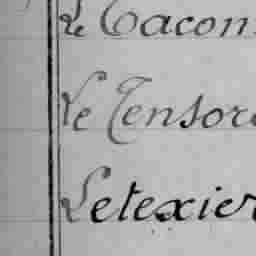 Le Tacon
Le Tensor
Letexier